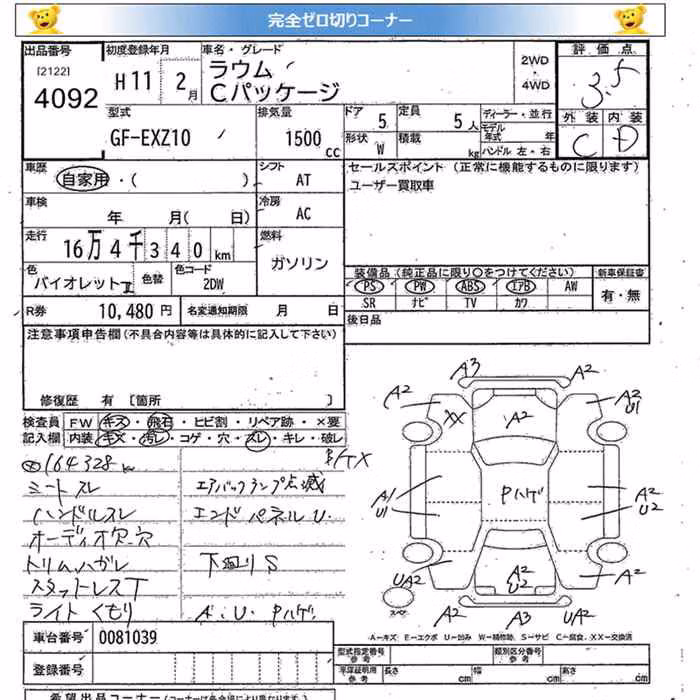 完全ゼロ切りコーナー
出品番号 初度登録年月 車名・グレード 評価点
[2122] 4092 H11 2月 ラウム Cパッケージ 2WD・4WD 3.5
型式 排気量 ドア 5 定員 5人 ディーラー・並行 外装 内装
GF-EXZ10 1500cc 形状 W 積載 kg モデル年式 年 ハンドル 左・右 C D
車歴 自家用・( ) シフト AT セールスポイント(正常に機能するものに限ります)
ユーザー買取車
車検 年 月( 日) 冷房 AC
走行 16万4千340km 燃料 ガソリン
色 バイオレットⅡ 色替 色コード 2DW
装備品(純正品に限り○をつけてください) 新車保証書
PS PW ABS エアB AW 有・無
SR ナビ TV カワ
R券 10,480円 名変通知期限 月 日 後日品
注意事項申告欄(不具合内容等は具体的に記入して下さい)
修復歴 有 [箇所 ]
検査員 FW キズ・飛石・ヒビ割・リペア跡・×要
記入欄 内装 キズ・汚レ・コゲ・穴・スレ・キレ・破レ
164328km
シートスレ エアバックランプ点滅
ハンドルスレ エンドパネルU.
オーディオ欠.穴
トリムハガレ 下廻りS
スタットレスT
ライトくもり A・U・Pハゲ
A3 A2
A2 XX A2 A2 U1
A1 U1 Pハゲ A2 U2
UA2 A2 U2 A2
スペア A2 A3 UA2
A-キズ E-エクボ U-凹み W-補修跡 S-サビ C-腐食 XX-交換済
車台番号 0081039
登録番号
型式指定番号 参考 類別区分番号 参考
車庫証明用 参考 長さ cm 幅 cm 高さ cm
希望出品コーナー